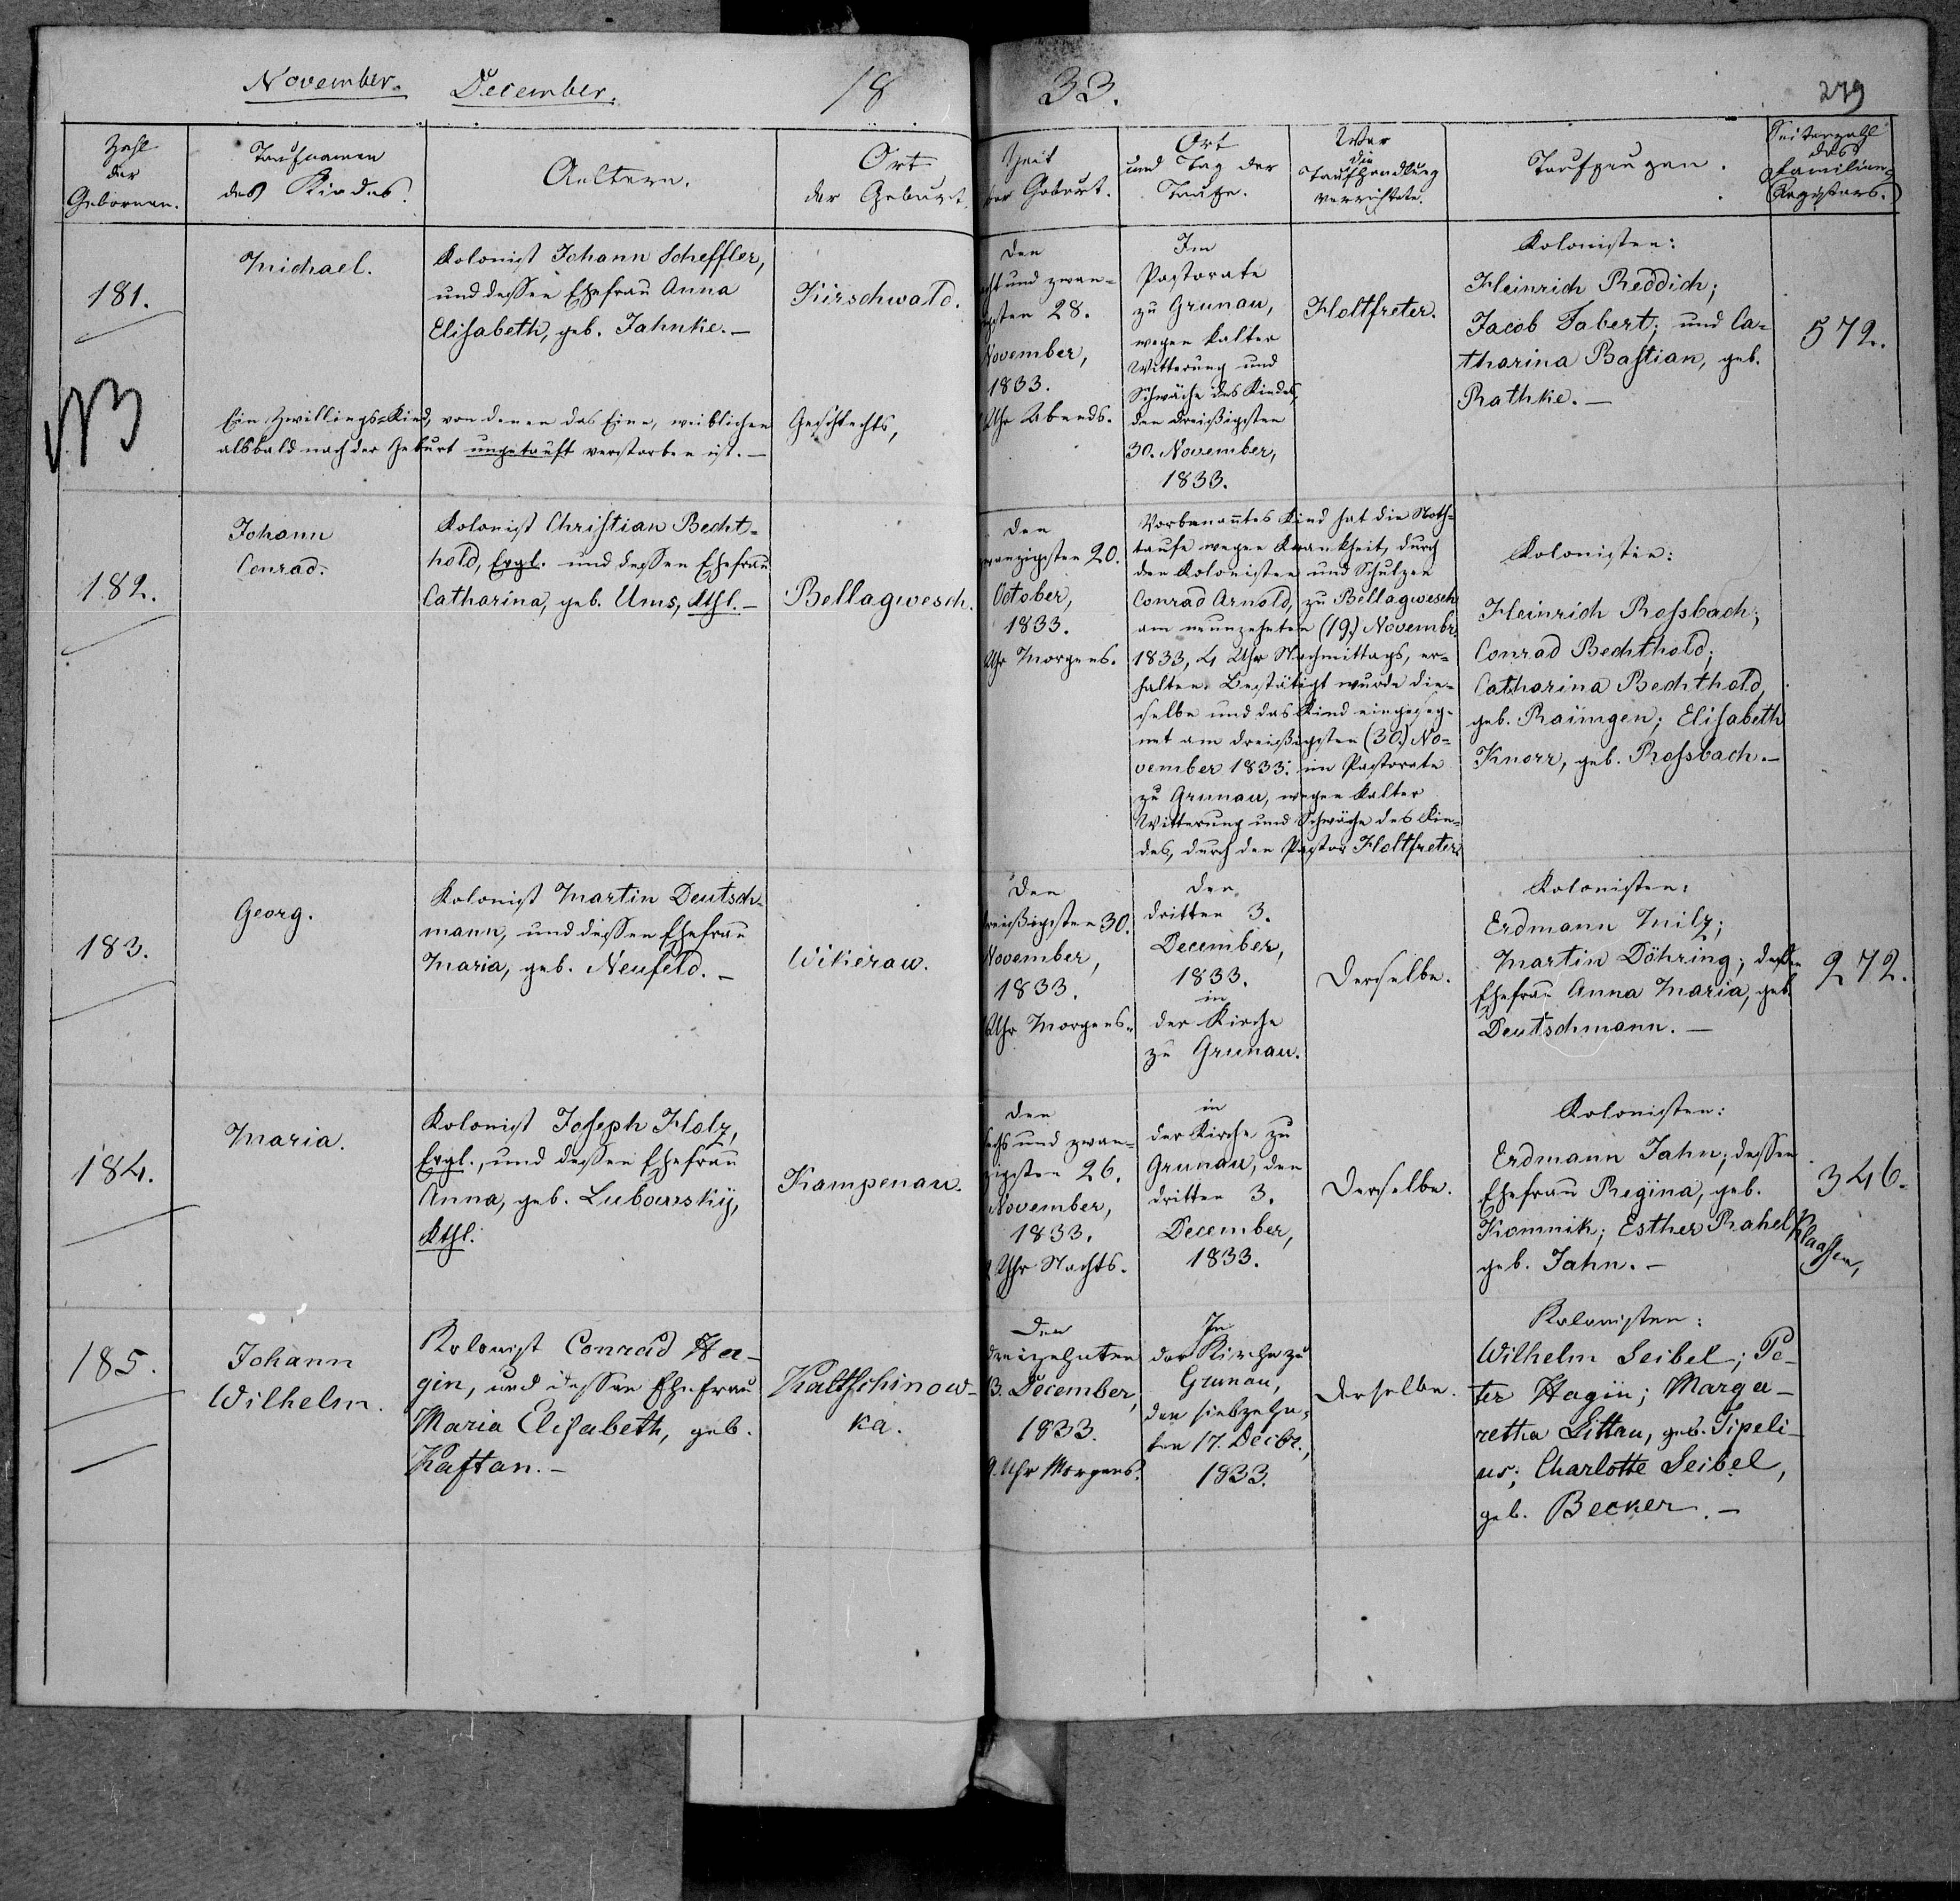 November. December. 18 33. 279
Zahl
der
Gebornen.
Taufnamen
des Kindes.
Aeltern.
Ort
der Geburt.
Zeit
der Geburt.
Ort
und Tag der
Taufe.
Wer
die
Taufhandlung
verrichtete.
Taufzeugen.
Seitenzahl
des
Familien-
Registers.
181.
Michael.
Kolonist Johann Scheffler,
und dessen Ehefrau Anna
Elisabeth, geb. Jahnke. –
Kirschwald.
Den
acht und zwan-
zigsten 28.
November,
1833.
Uhr Abends.
Im
Pastorate
zu Grunau,
wegen kalter
Witterung und
Schwäche des Kindes,
den dreißigsten
30. November,
1833.
Holtfreter.
Kolonisten:
Heinrich Reddich;
Jacob Fabert; und Ca-
tharina Bastian, geb.
Rathke. –
572.
Ein Zwillings-Kind, von denen das Eine, weiblichen Geschlechts,
alsbald nach der Geburt ungetauft verstorben ist. –
182.
Johann
Conrad.
Kolonist Christian Becht-
hold, Evgl. und dessen Ehefrau
Catharina, geb. Ums, Kthl. –
Bellagwesch.
Den
zwanzigsten 20.
October,
1833.
Uhr Morgens.
Vorbenanntes Kind hat die Noth-
taufe wegen Krankheit, durch
den Kolonisten und Schulzen
Conrad Arnold, zu Bellagwesch
am neunzehnten (19.) Novembr.
1833, 4 Uhr Nachmittags, er-
halten. Bestätigt wurde die-
selbe und das Kind eingeseg-
net am dreißigsten (30.) No-
vember 1833. im Pastorate
zu Grunau, wegen kalter
Witterung und Schwäche des Kin-
des, durch den Pastor Holtfreter.
Kolonisten:
Heinrich Rossbach;
Conrad Bechthold;
Catharina Bechthold,
geb. Raimgen; Elisabeth
Knorr, geb. Rossbach. –
183.
Georg.
Kolonist Martin Deutsch-
mann, und dessen Ehefrau
Maria, geb. Neufeld. –
Wikerau.
Den
dreißigsten 30.
November,
1833.
Uhr Morgens.
Den
dritten 3.
December,
1833.
in
der Kirche
zu Grunau.
Derselbe.
Kolonisten:
Erdmann Milz;
Martin Döhring; dessen
Ehefrau Anna Maria, geb.
Deutschmann. –
272.
184.
Maria.
Kolonist Joseph Holz,
Evgl., und dessen Ehefrau
Anna, geb. Lubowsky,
Kthl.
Kampenau.
Den
sechs und zwan-
zigsten 26.
November,
1833.
Uhr Nachts.
in
der Kirche zu
Grunau, den
dritten 3.
December,
1833.
Derselbe.
Kolonisten:
Erdmann Jahn; dessen
Ehefrau Regina, geb.
Komnik; Esther Rahel Klaassen,
geb. Jahn. –
346.
185.
Johann
Wilhelm.
Kolonist Conrad Ha-
gin, und dessen Ehefrau
Maria Elisabeth, geb.
Kaftan. –
Kaltschinow-
ka.
Den
dreizehnten
13. December,
1833.
9. Uhr Morgens.
In
der Kirche zu
Grunau,
den siebzehn-
ten 17. Decbr.,
1833.
Derselbe.
Kolonisten:
Wilhelm Seibel; Pe-
ter Hagin; Marga-
retha Littau, geb. Sipeli-
us; Charlotte Seibel,
geb. Becker. –